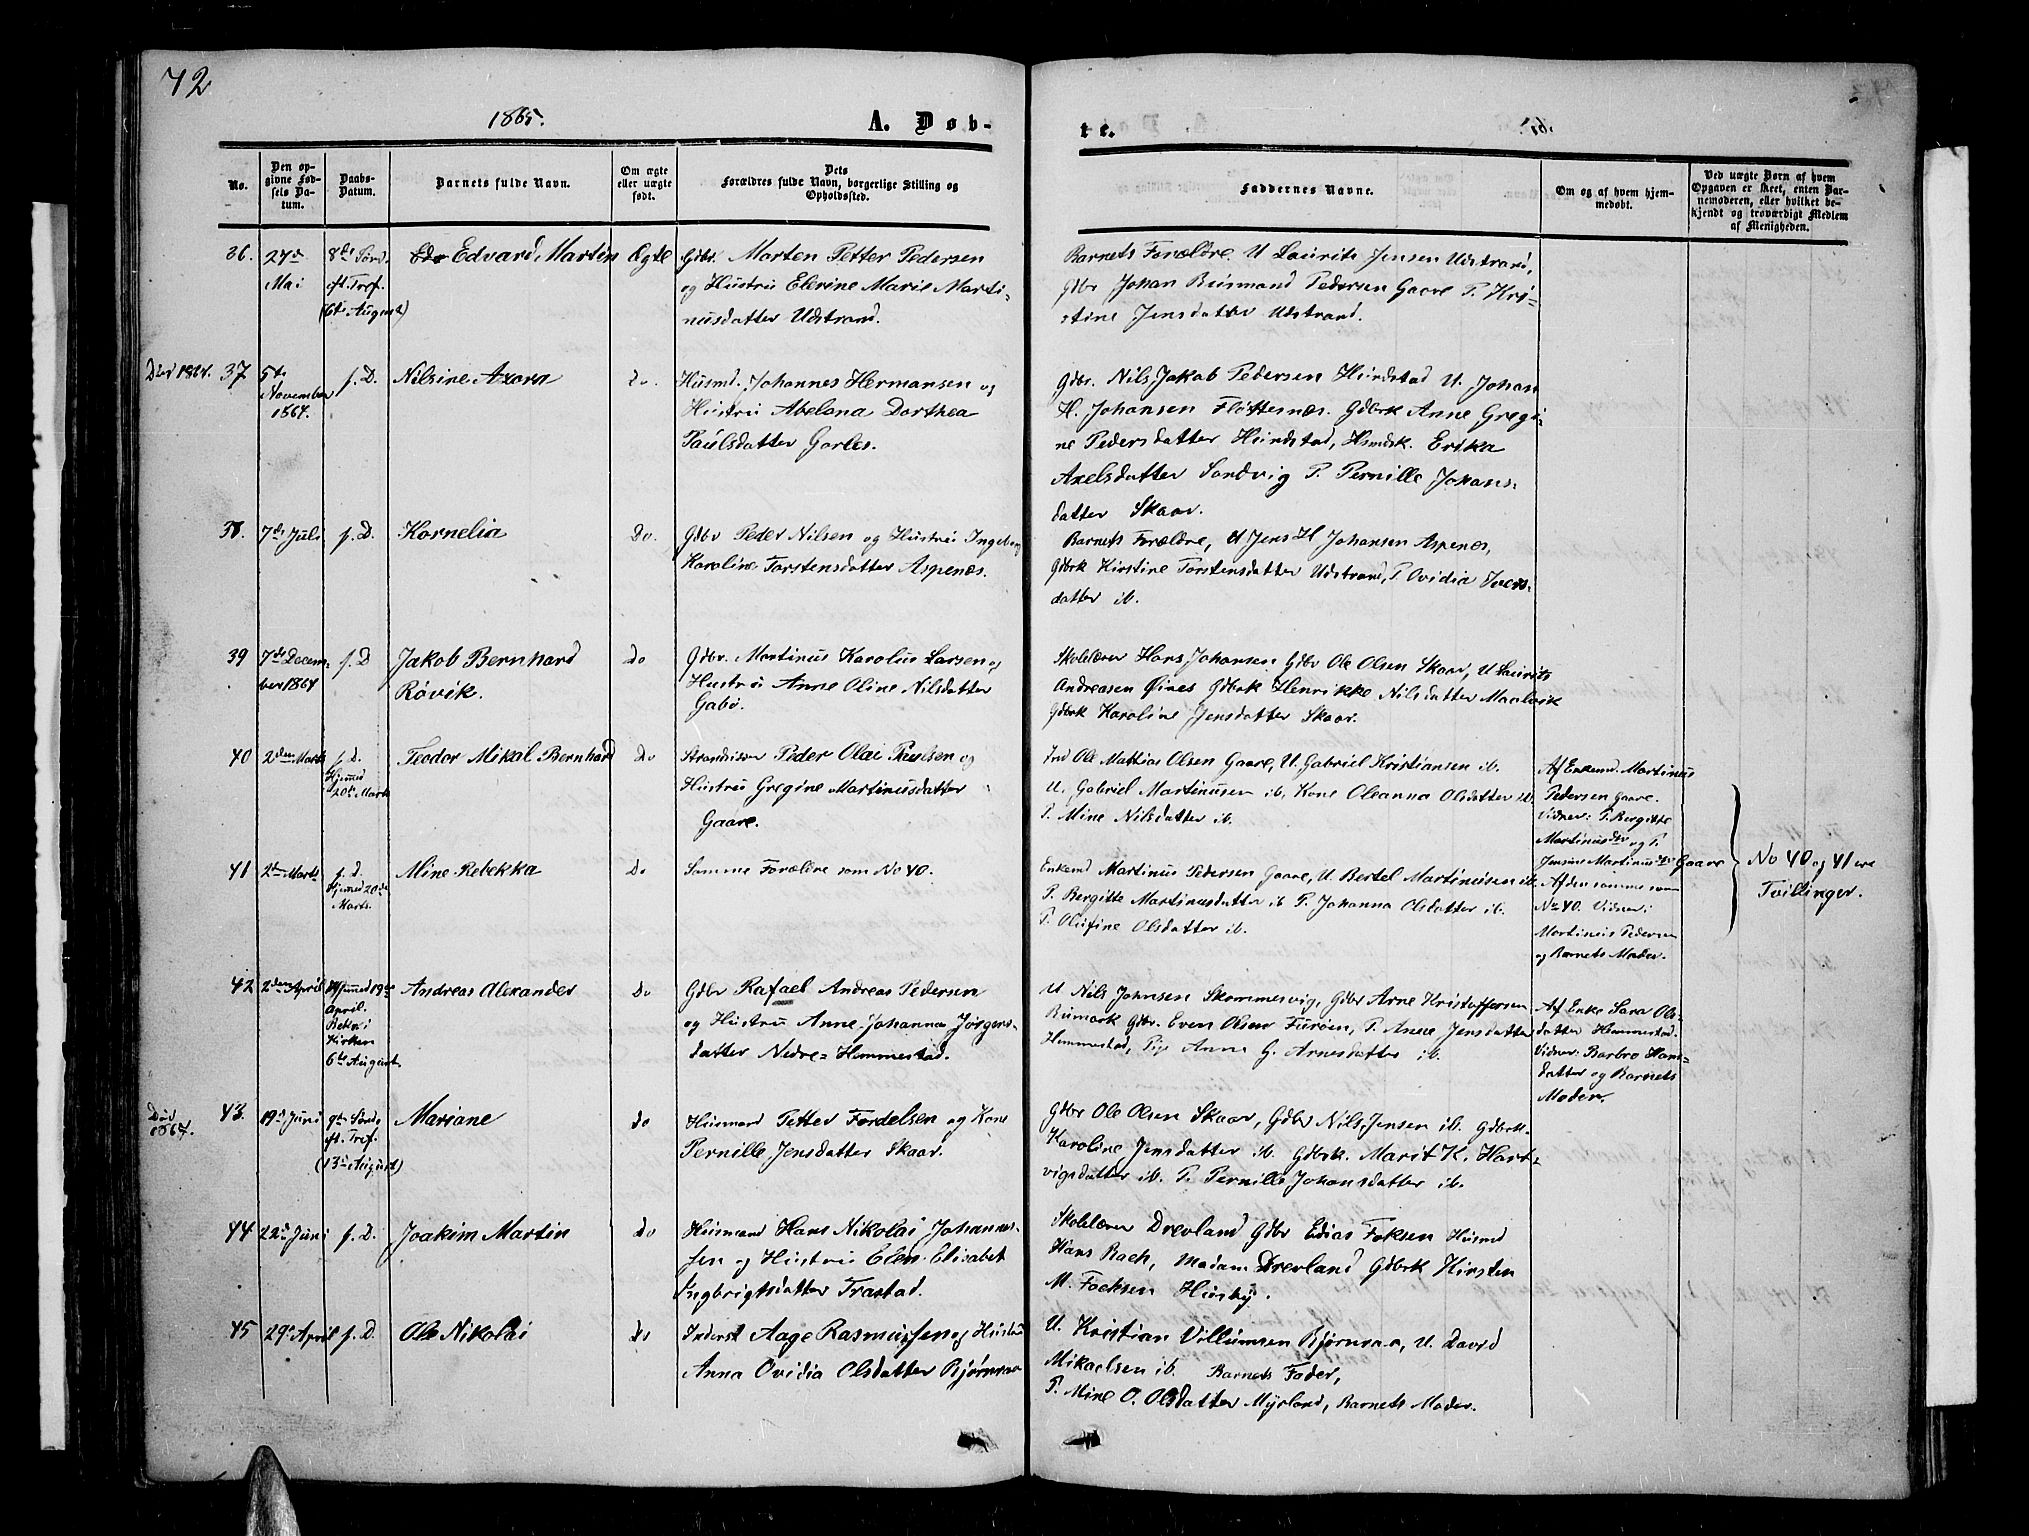 72
1865.
A. Døb-
te.
No.
Den op-
givne Fød-
sels Da-
tum.
Daabs-
Datum.
Barnets fulde Navn.
Om ægte
eller uægte
født.
Dets
Forældres fulde Navn, borgerlige Stilling og
Opholdssted.
Faddernes Navne.
Om og af hvem hjem-
medøbt.
Ved uægte Børn af hvem
Opgaven er skeet, enten Bar-
nemoderen, eller hvilket be-
kjendt og troværdigt Medlem
af Menigheden.
36.
27de
Mai
8de Sønd.
eft. Tref.
(6te August)
Edvard Martin
Ægte
Gdbr. Morten Petter Pedersen
og Hustru Elerine Marie Marti-
nusdatter Udstrand.
Barnets Forældre. U Laurits Jensen Udstrand,
Gdbr Johan Busmand Pedersen Gaare P. Kri-
stine Jensdatter Udstrand.
Død 1864.
37
5te
November
1864.
f. D.
Nilsine Axora
do.
Husmd. Johannes Hermansen og
Hustru Abelona Dorthea
Paulsdatter Gorles.
Gdbr. Nils Jakob Pedersen Hundstad U. Johan
H. Johansen Fløttenæs. Gdbrk Anne Gregi-
ne Pedersdatter Hundstad, Hsmdsk. Erika
Axelsdatter Sandvig P. Pernille Johans-
datter Skaar.
38.
7de Juli
f. D.
Kornelia
Do.
Gdbr Peder Nilsen og Hustru Ingeborg
Karoline Torstensdatter Aspenes.
Barnets Forældre, U Jens H Johansen Aspenes,
Gdbrk Kirstine Torstensdatter Udstrand, P. Ovidia Ivers-
datter ib.
39
7de Decem-
ber 1864
f. D
Jakob Bernhard
Røvik.
Do
Gdbr. Martinus Karolus Larsen og
Hustru Anne Oline Nilsdatter
Gabø.
Skolelærer Hans Johansen Gdbr Ole Olsen Skaar, U Laurits
Andreasen Øines Gdbrk Henrikke Nilsdatter Maalvik
Gdbrk Karoline Jensdatter Skaar.
40
2den Marts
f. D.
Hjemmed
20de Marts
Teodor Mikal Bernhard
Do
Strandsidder Peder Olai Paulsen og
Hustru Gregine Martinusdatter
Gaare.
Ind Ole Mattias Olsen Gaare, U. Gabriel Kristiansen ib.
U. Gabriel Martinussen ib, Kone Oleanna Olsdatter ib.
P. Mine Nilsdatter ib.
Af Enkemd. Martinus
Pedersen Gaare.
Vidner: P. Bergitte
Martinusdtr og P.
Jensine Martinusdtr Gaare
41
2den Marts
f. D.
Hjemmed 20de
Marts.
Mine Rebekka
Do
Samme Forældre som No 40.
Enkemd Martinus Pedersen Gaare, U. Bertel Martinussen ib.
P. Bergitte Martinusdatter ib P. Johanna Olsdatter ib.
P. Olufine Olsdatter ib.
Af den samme som
No 40. Vidner:
Martinus Pedersen
og Barnets Moder.
No 40 og 41 ere
Tvillinger.
42
2den April
Hjemmed 19de
April.
Bekr. i
Kirken
6te August.
Andreas Alexander
Do
Gdbr Rafael Andreas Pedersen
og Hustru Anne Johanna Jørgens-
datter Nedre-Hemmestad.
U Nils Johnsen Skommesvig, Gdbr Arne Kristoffersen
Bumark Gdbr. Even Olsen Furøen, P. Anne Jensdatter
Hemmestad, Pige Anne G. Arnesdatter ib.
Af Enke Sara Ols-
datter Hemmestad.
Vidner: Barbro Hans-
datter og Barnets
Moder.
Død
1864.
43.
19de Juni
9de Sønd.
eft. Tref.
(13de August)
Mariane
do
Husmand Petter Fordelsen og Kone
Pernille Jensdatter Skaar.
Gdbr Ole Olsen Skaar, Gdbr Nils Jensen ib. Gdbrk.
Karoline Jensdatter ib. Gdbrk. Marit K. Hart-
vigsdatter ib. P. Pernille Johansdatter ib.
44
22de Juni
f. D.
Joakim Martin
Do
Husmand Hans Nikolai Johannes-
sen og Hustru Elen Elisabet
Ingbrigtsdatter Trastad.
Skolelærer Drevland Gdbr Edias Foksen Husmd
Hans Bach, Madam Drevland Gdbrk Kirsten
M. Focksen Husby.
45
29de April
f. D.
Ole Nikolai
Do
Inderst Aage Rasmussen og Hustru
Anna Ovidia Olsdatter Bjørnraa
U. Kristian Villumsen Bjørnraa, U. David
Mikaelsen ib. Barnets Fader,
P. Mine O. Olsdatter Myrland, Barnets Moder.